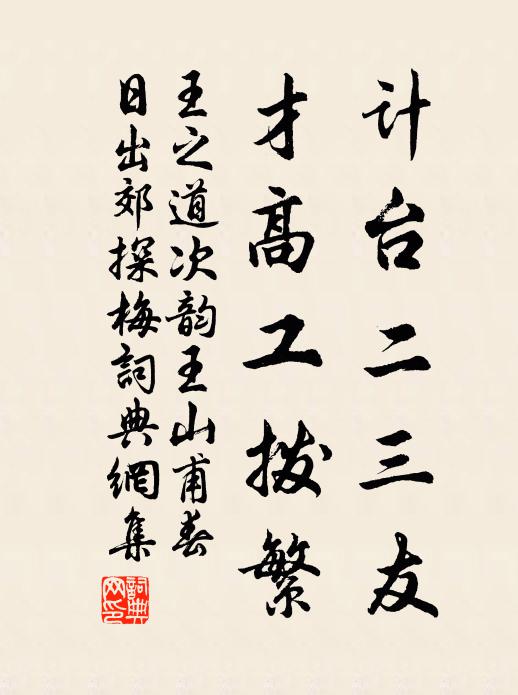 计台二三友
才高工拨繁
王之道次韵王山甫春
日出郊探梅詞典網集
詞典網印